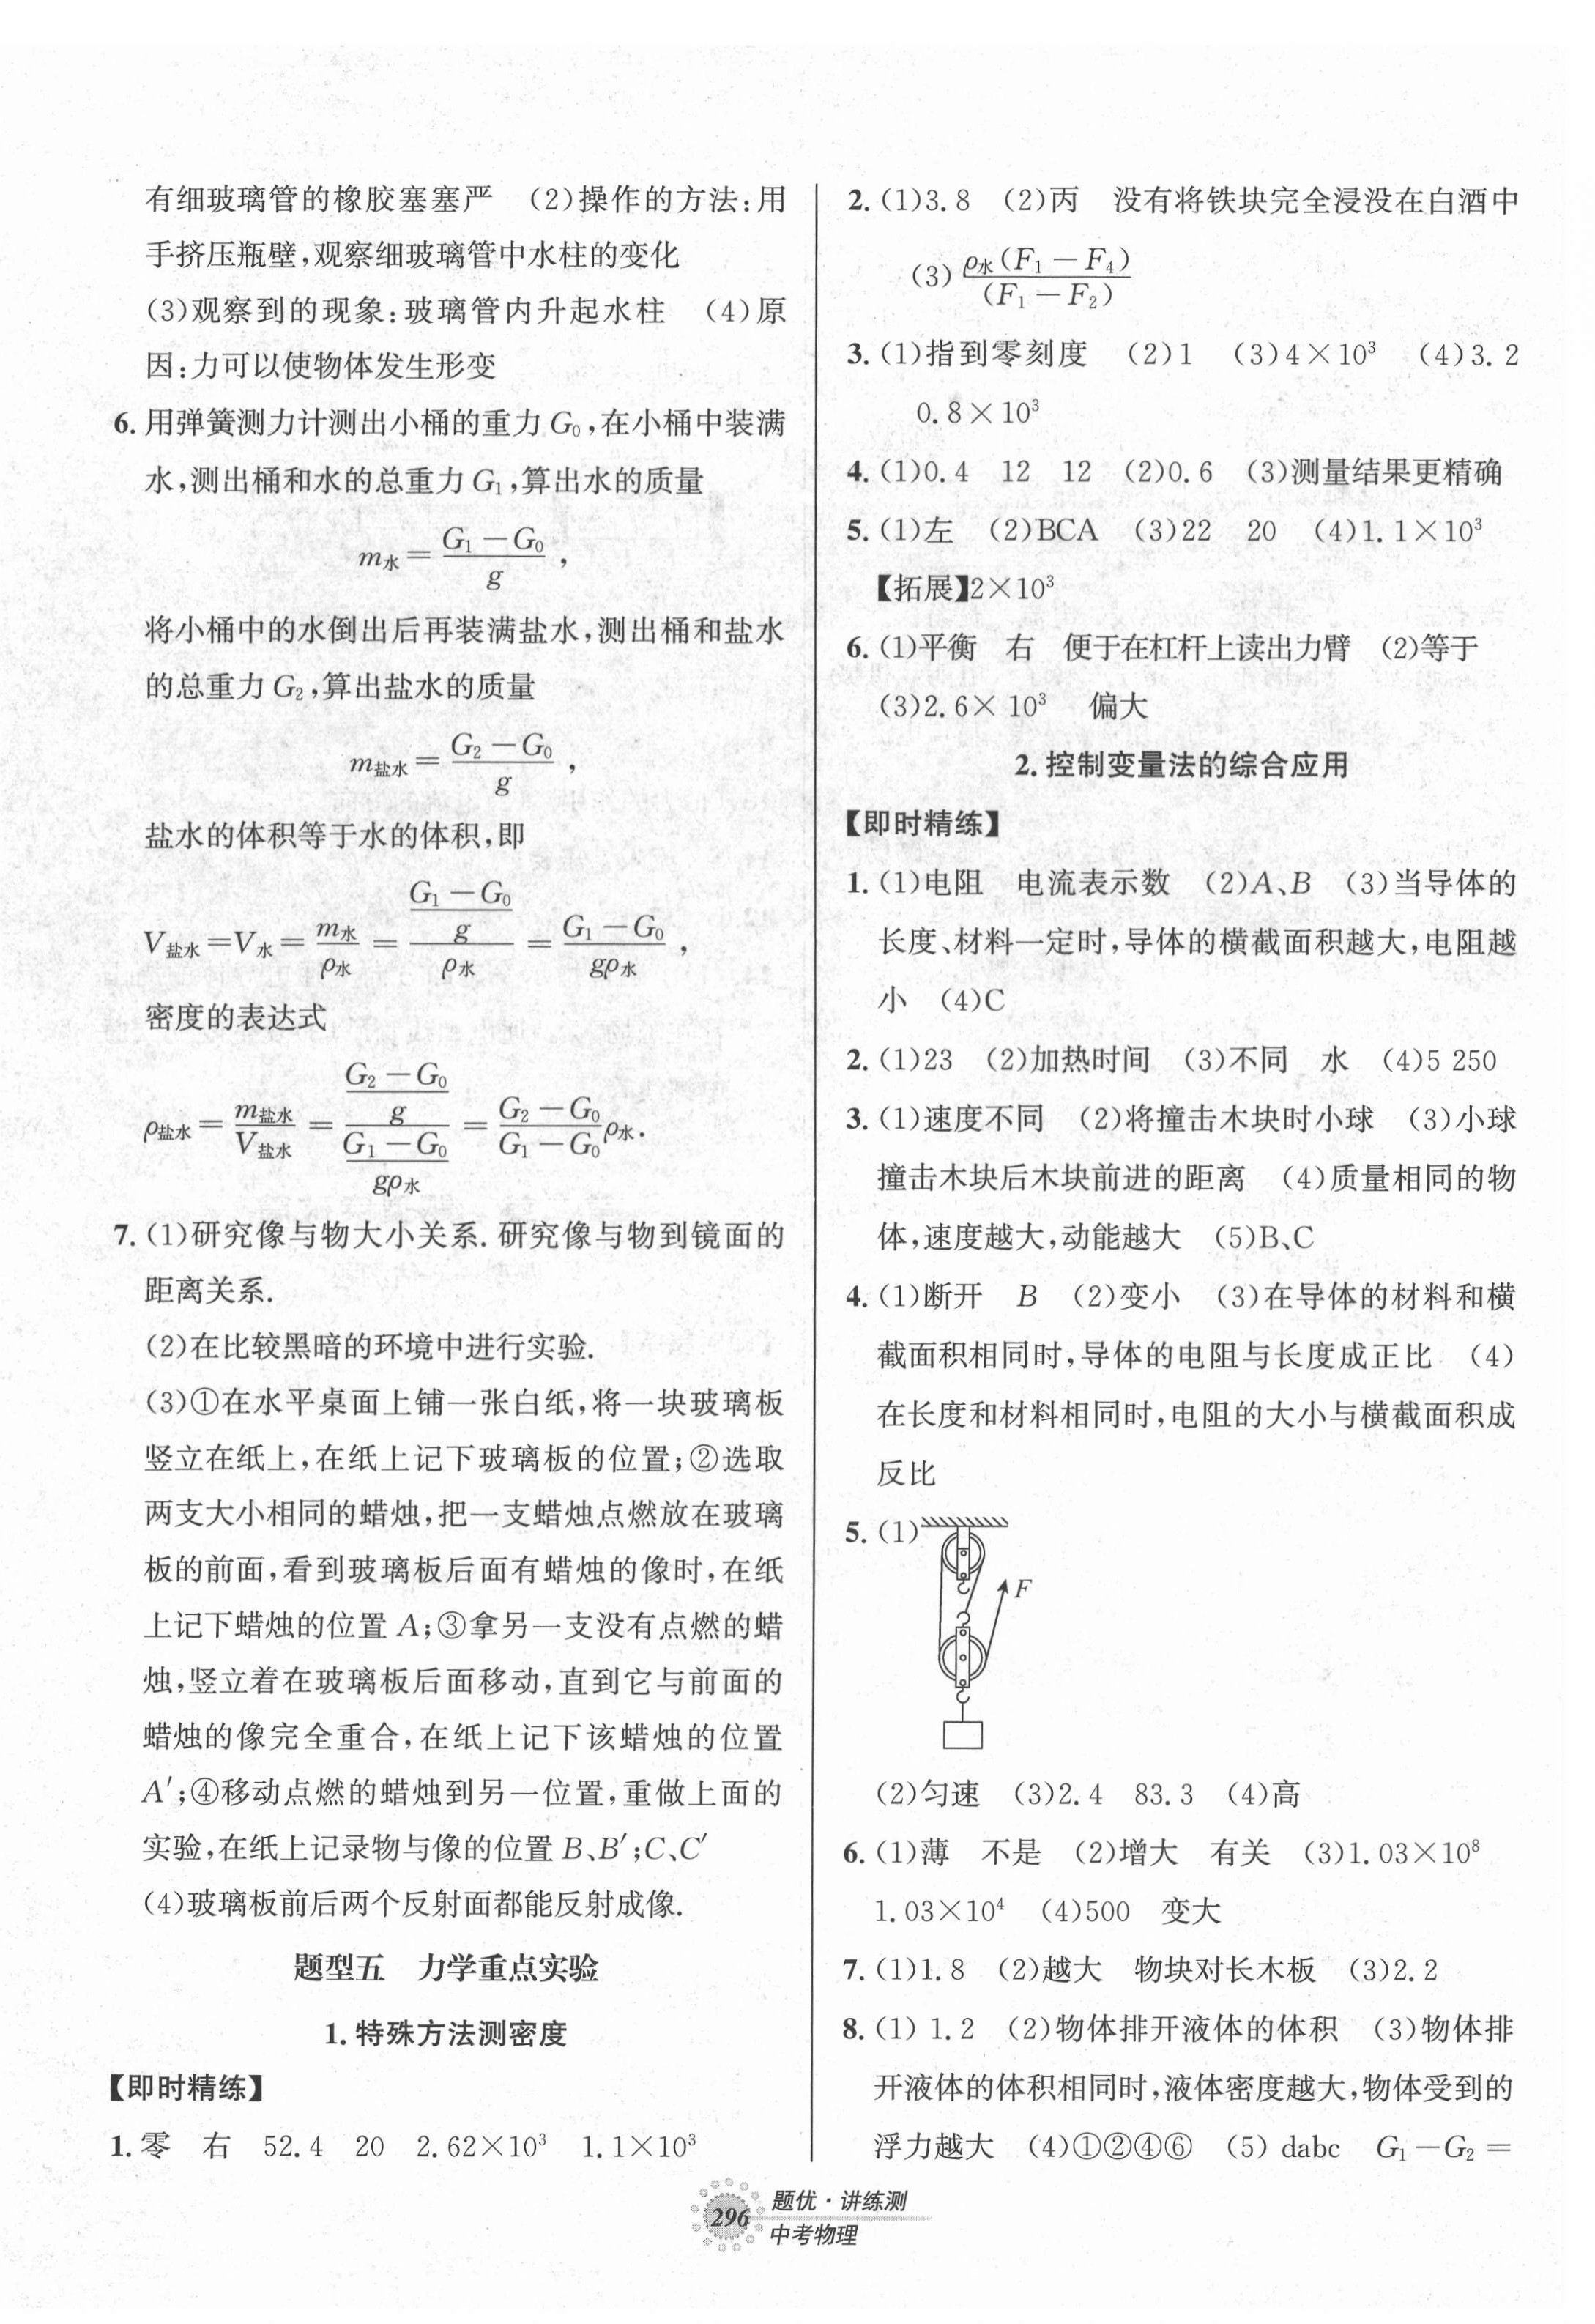 有细玻璃管的橡胶塞塞严　(2)操作的方法:用
手挤压瓶壁,观察细玻璃管中水柱的变化
(3)观察到的现象:玻璃管内升起水柱　(4)原
因:力可以使物体发生形变
6. 用弹簧测力计测出小桶的重力 G₀,在小桶中装满
水,测出桶和水的总重力 G₁,算出水的质量
m水 = (G₁－G₀)/g ,
将小桶中的水倒出后再装满盐水,测出桶和盐水
的总重力 G₂,算出盐水的质量
m盐水 = (G₂－G₀)/g ,
盐水的体积等于水的体积,即
V盐水=V水= m水/ρ水 = ((G₁－G₀)/g)/ρ水 = (G₁－G₀)/(gρ水) ,
密度的表达式
ρ盐水= m盐水/V盐水 = ((G₂－G₀)/g)/((G₁－G₀)/(gρ水)) = (G₂－G₀)/(G₁－G₀) ρ水.
7. (1)研究像与物大小关系. 研究像与物到镜面的
距离关系.
(2)在比较黑暗的环境中进行实验.
(3)①在水平桌面上铺一张白纸,将一块玻璃板
竖立在纸上,在纸上记下玻璃板的位置;②选取
两支大小相同的蜡烛,把一支蜡烛点燃放在玻璃
板的前面,看到玻璃板后面有蜡烛的像时,在纸
上记下蜡烛的位置 A;③拿另一支没有点燃的蜡
烛,竖立着在玻璃板后面移动,直到它与前面的
蜡烛的像完全重合,在纸上记下该蜡烛的位置
A′;④移动点燃的蜡烛到另一位置,重做上面的
实验,在纸上记录物与像的位置 B、B′;C、C′
(4)玻璃板前后两个反射面都能反射成像.
题型五　力学重点实验
1. 特殊方法测密度
【即时精练】
1. 零　右　52.4　20　2.62×10³　1.1×10³
2. (1)3.8　(2)丙　没有将铁块完全浸没在白酒中
(3) ρ水(F₁－F₄)/(F₁－F₂)
3. (1)指到零刻度　(2)1　(3)4×10³　(4)3.2
0.8×10³
4. (1)0.4　12　12　(2)0.6　(3)测量结果更精确
5. (1)左　(2)BCA　(3)22　20　(4)1.1×10³
【拓展】2×10³
6. (1)平衡　右　便于在杠杆上读出力臂　(2)等于
(3)2.6×10³　偏大
2. 控制变量法的综合应用
【即时精练】
1. (1)电阻　电流表示数　(2)A、B　(3)当导体的
长度、材料一定时,导体的横截面积越大,电阻越
小　(4)C
2. (1)23　(2)加热时间　(3)不同　水　(4)5 250
3. (1)速度不同　(2)将撞击木块时小球　(3)小球
撞击木块后木块前进的距离　(4)质量相同的物
体,速度越大,动能越大　(5)B、C
4. (1)断开　B　(2)变小　(3)在导体的材料和横
截面积相同时,导体的电阻与长度成正比　(4)
在长度和材料相同时,电阻的大小与横截面积成
反比
5. (1)
F
(2)匀速　(3)2.4　83.3　(4)高
6. (1)薄　不是　(2)增大　有关　(3)1.03×10⁸
1.03×10⁴　(4)500　变大
7. (1)1.8　(2)越大　物块对长木板　(3)2.2
8. (1) 1.2　(2)物体排开液体的体积　(3)物体排
开液体的体积相同时,液体密度越大,物体受到的
浮力越大　(4)①②④⑥　(5) dabc　G₁－G₂＝
296
题优·讲练测
中考物理